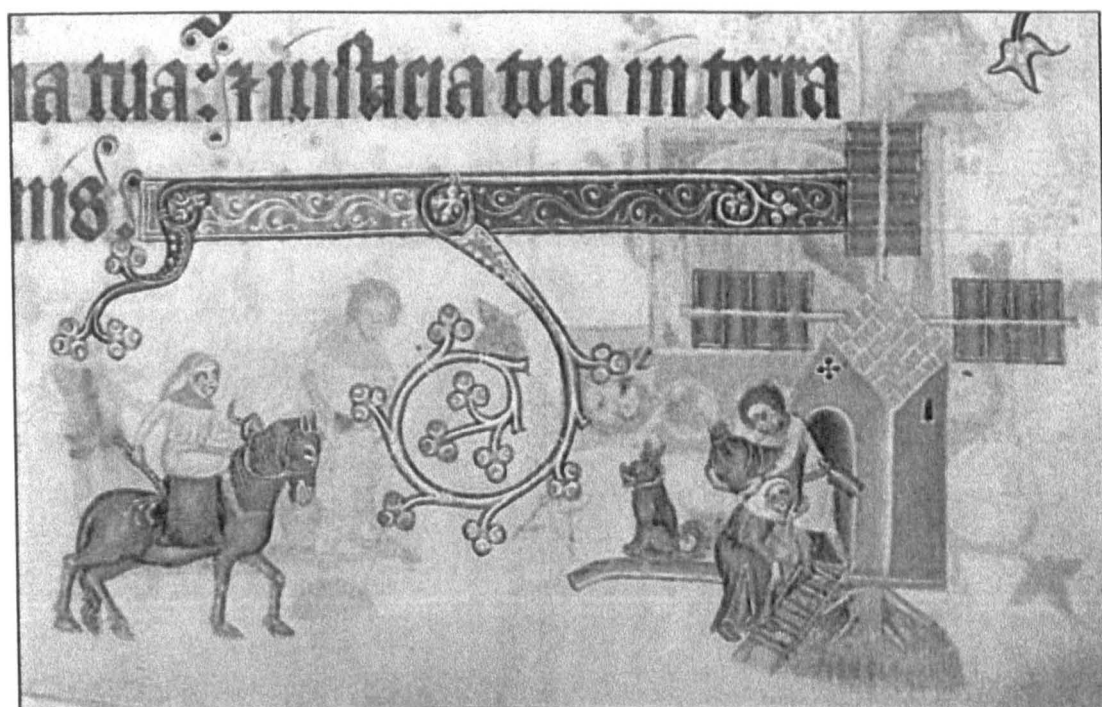 ia tua: ⁊ iusticia tua in terra
nis.